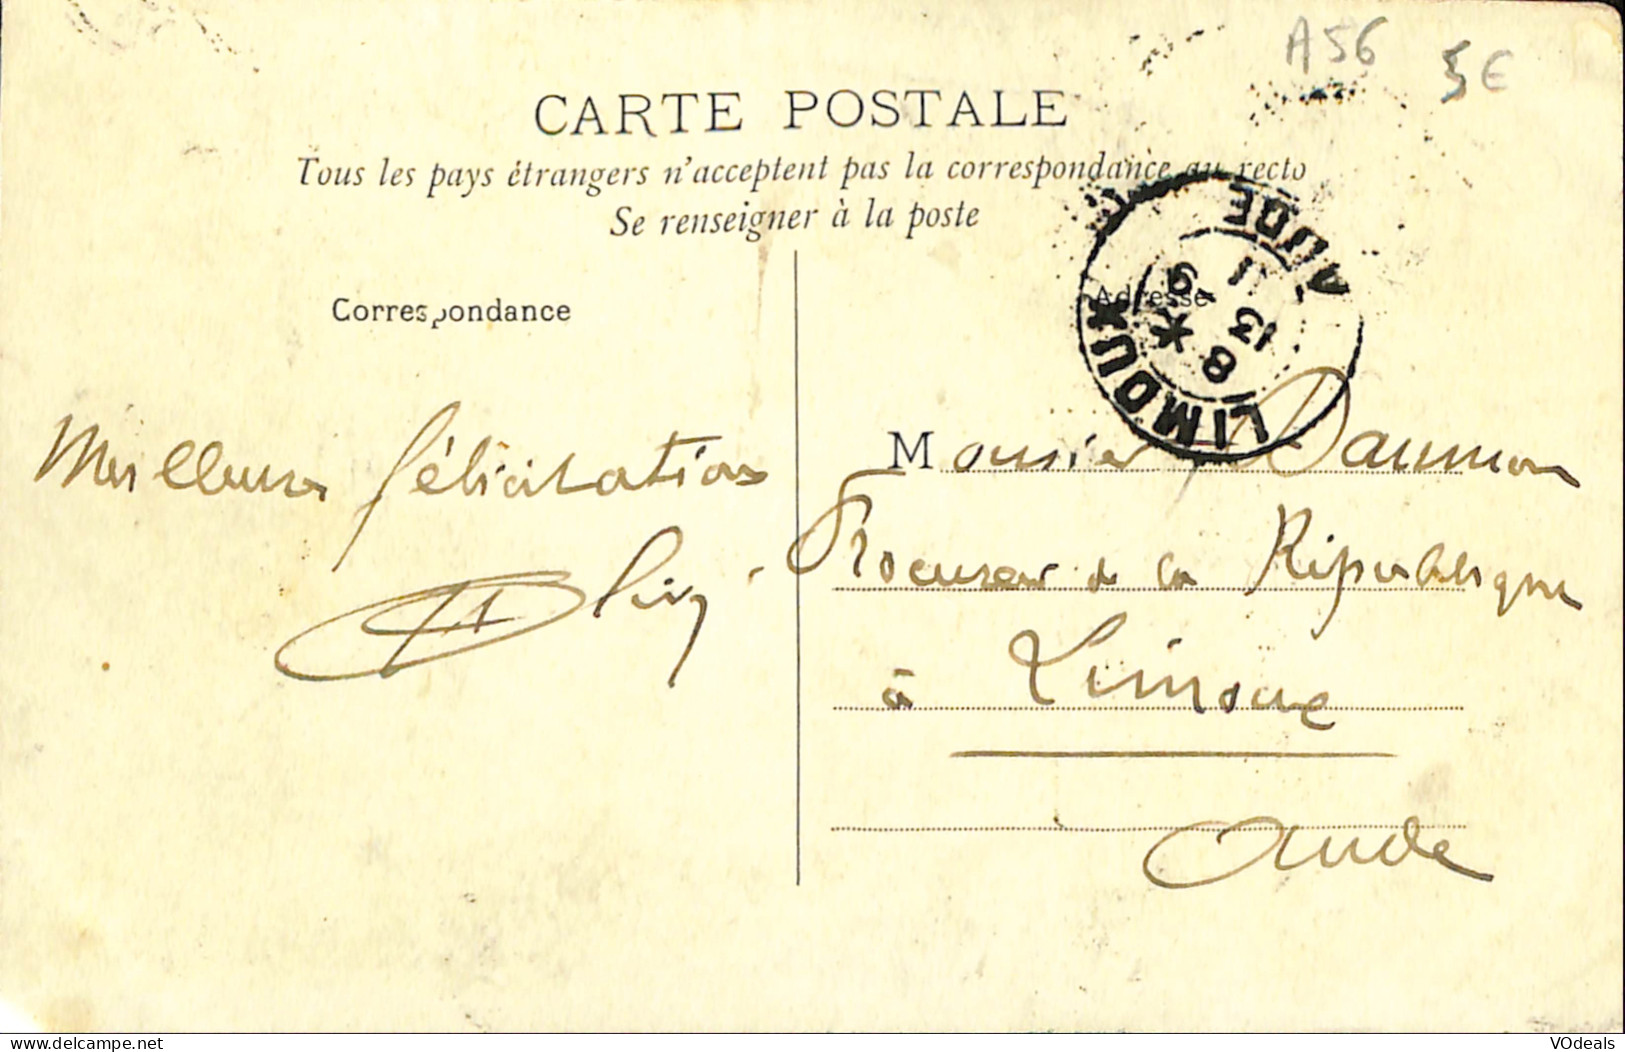 A56 5€
CARTE POSTALE
Tous les pays étrangers n'acceptent pas la correspondance au recto
Se renseigner à la poste
Correspondance
Adresse
LIMOUX
AUDE
8 *
13 9
11
Meilleures félicitations
Monsieur Daumon
Procureur de la République
à Limoux
Aude
VOdeals